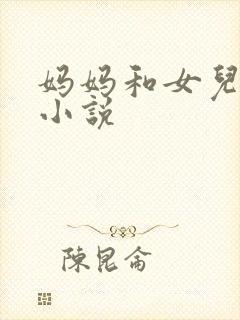 妈妈和女兒
小説
陳昆侖